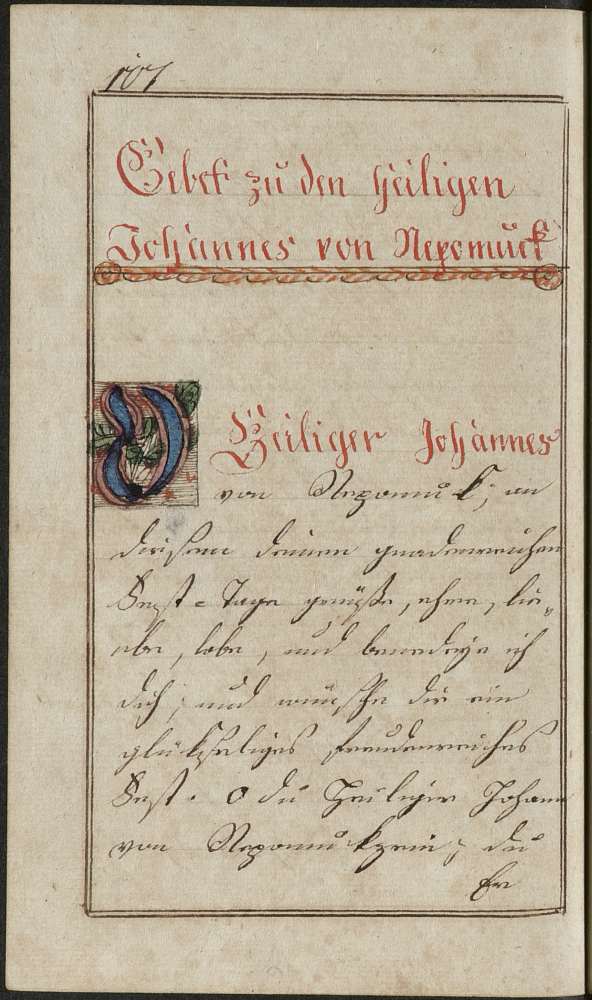 107
Gebet zu den Heiligen
Johannes von Nepomuck
O Heiliger Johannes
von Nepomuk, an
diesem deinem gnadenreichen
Fest = Tage grüße, ehre, lie„
ebe, lobe, und benedeye ich
dich, und wünsche dir ein
glükseliges freudenreiches
Fest. O du Heiliger Johann
von Nepomuk du